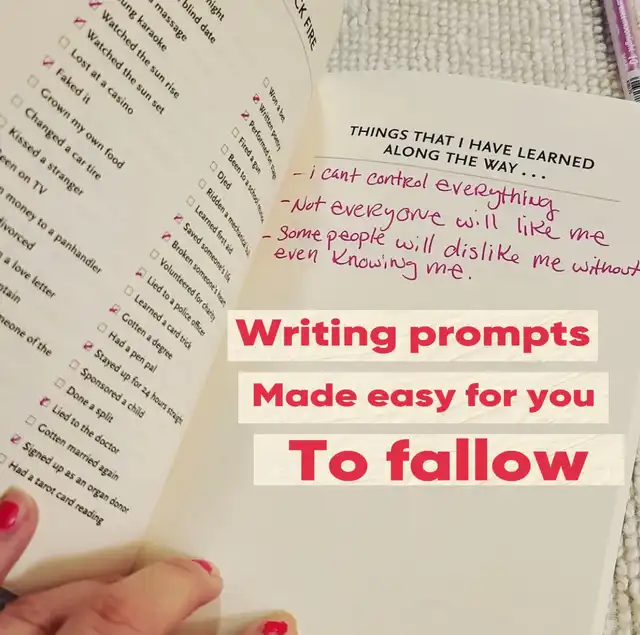 night
blind date
massage
karaoke
Watched the sun rise
Watched the sun set
Lost at a casino
Faked it
Grown my own food
Changed a car tire
Kissed a stranger
on TV
money to a panhandler
a love letter
of the
CK FIRE
Won a bet
Written poetry
Performed on
Fired a gun
Been to a school
Died
Ridden a mechanical
Learned first aid
Saved someone's life
Broken someone's heart
Volunteered for charity
Lied to a police officer
Learned a card trick
Gotten a degree
Had a pen pal
Stayed up for 24 hours straight
Sponsored a child
Done a split
Lied to the doctor
Gotten married again
Signed up as an organ donor
Had a tarot card reading
THINGS THAT I HAVE LEARNED
ALONG THE WAY . . .
- i cant control everything
- Not everyone will like me
- Some people will dislike me without
even knowing me.
Writing prompts
Made easy for you
To fallow